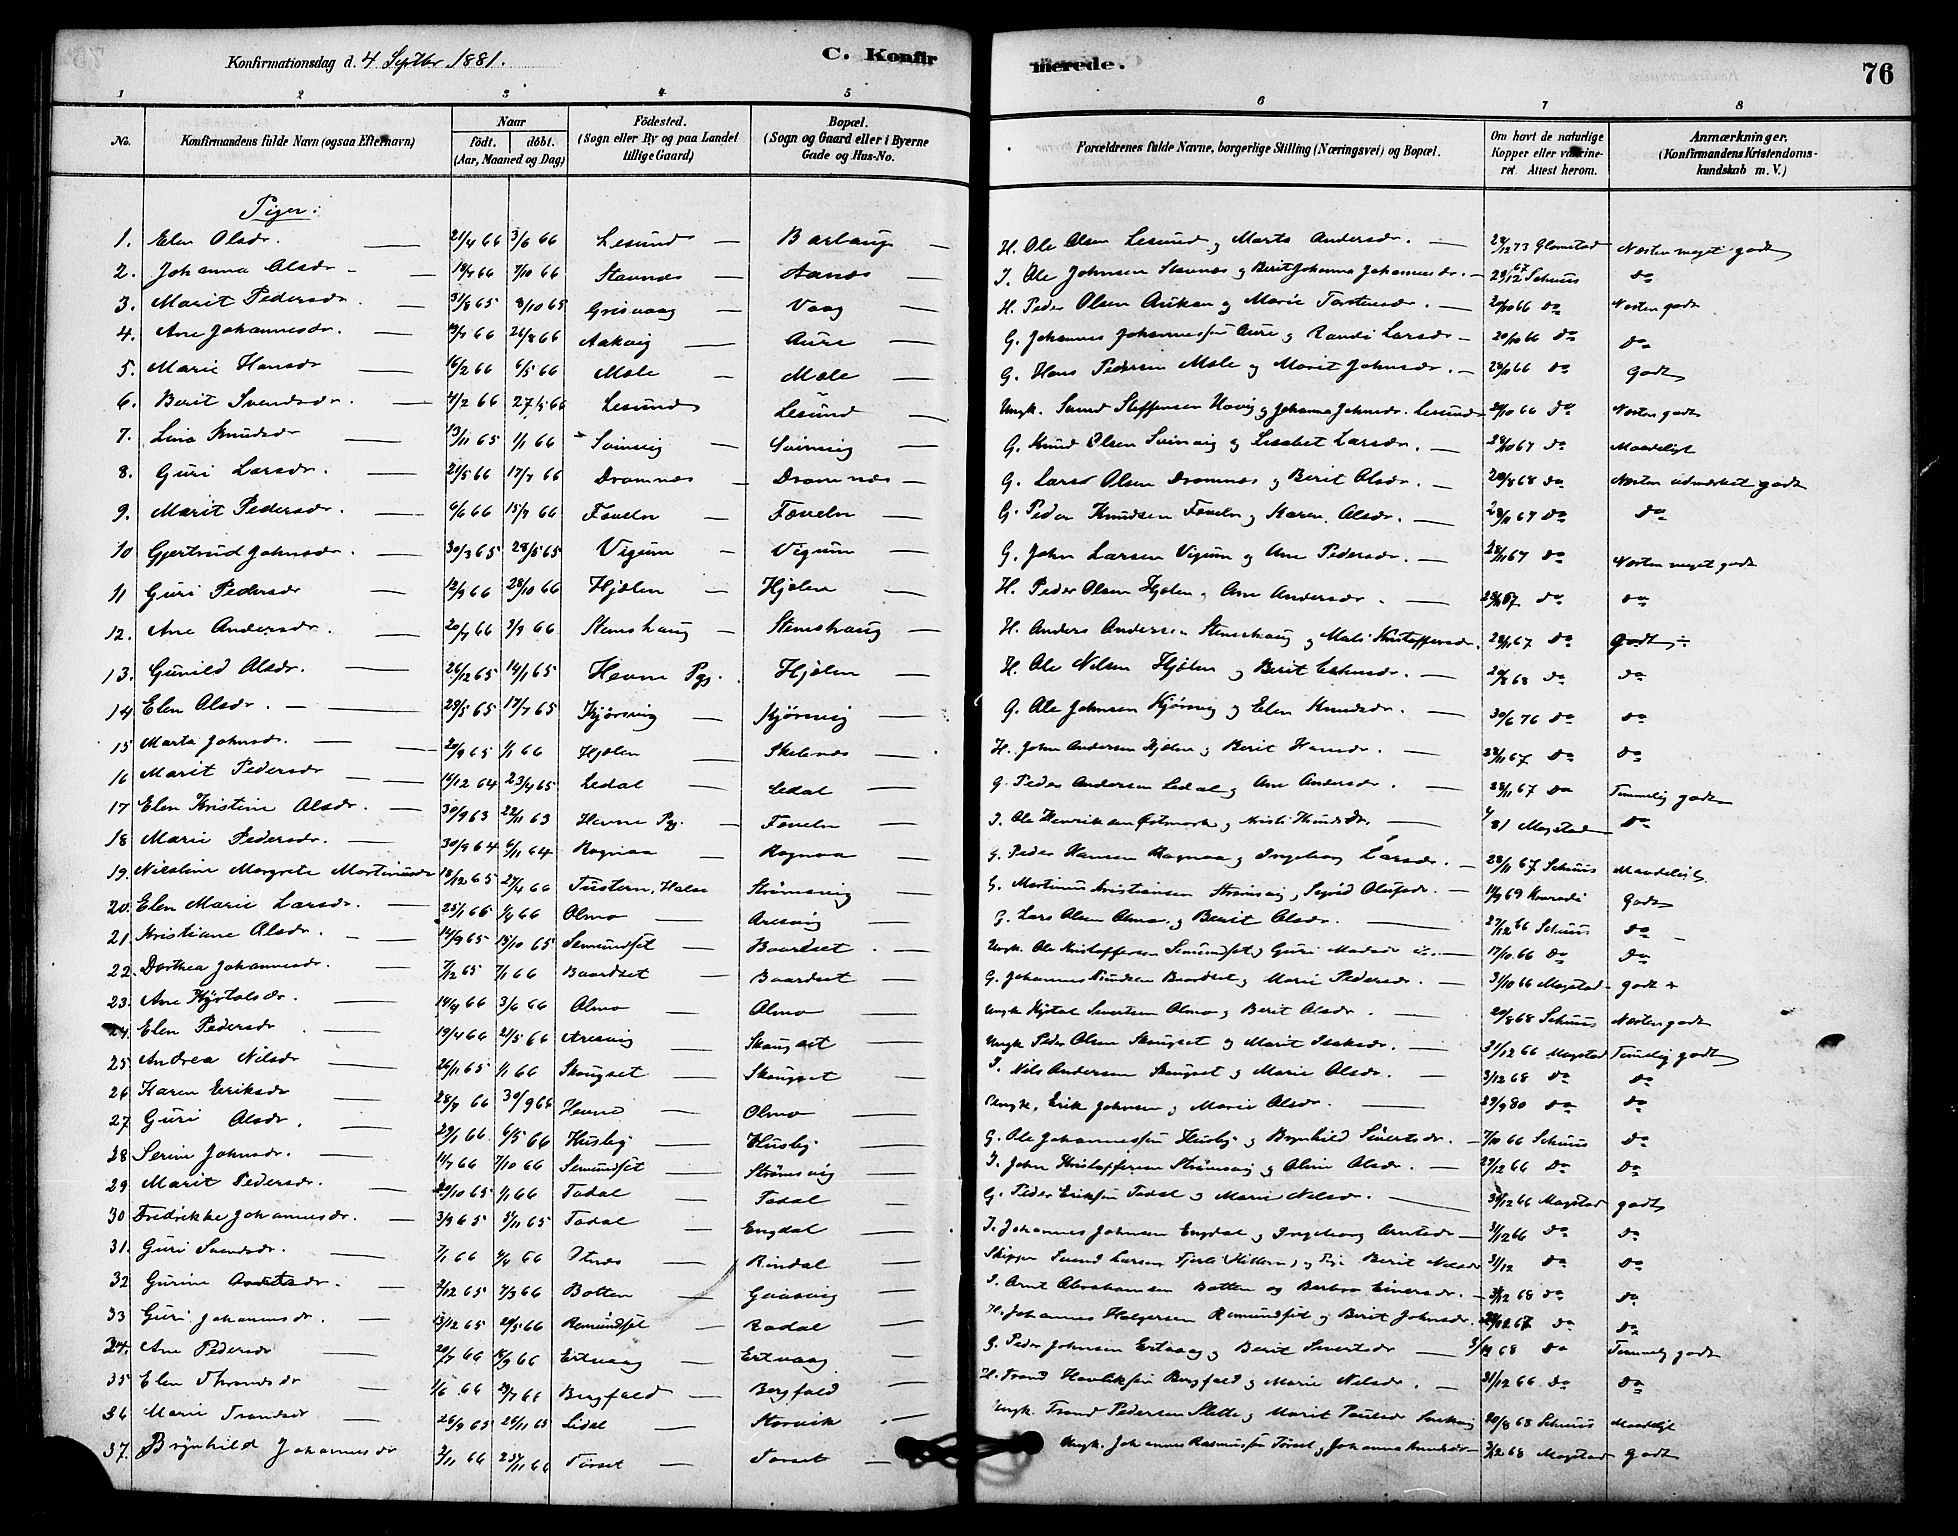 Konfirmationsdag d. 4 Septbr 1881.
C. Konfirmerede.
76
1 2 3 4 5 6 7 8
No.
Konfirmandens fulde Navn (ogsaa Efternavn)
Naar
födt. döbt.
(Aar, Maaned og Dag)
Födested.
(Sogn eller By og paa Landet tillige Gaard)
Bopæl.
(Sogn og Gaard eller i Byerne Gade og Hus-No.
Forældrenes fulde Navne, borgerlige Stilling (Næringsvei) og Bopæl.
Om havt de naturlige Kopper eller vaccineret Attest herom.
Anmærkninger.
(Konfirmandens Kristendomskundskab m. V.)
Piger:
1. Elen Olsdr. 21/4 66 3/6 66 Lesund H. Ole Olsen Lesund og Marta Andersdr. Glomstad Næsten meget godt
2. Johanna Olsdr. 7/10 66 Stavnæs Aanæs I. Ole Johnsen Stavnæs og Berit Johanna Johannesdr. Schuus do
3. Marit Pedersdr. 31/8 65 8/10 65 Grisvaag Vaag H. Peder Olsen og Marie Torstensdr. 20/10 66 do Næsten godt
4. Ane Johannesdr. 26/8 66 Aakvig Aure G. Johannes Johannessen Aure og Randi Larsdr. 20/10 66 do do
5. Marie Hansdr 16/2 66 6/5 66 Mæle Mæle G. Hans Pedersen Mæle og Marit Johnsdr. do Godt
6. Berit Svendsdr. 27/5 66 Lesund Lesund Ungk. Svend Steffensen og Johanna Johnsdr. Lesund do Næsten godt
7. Lina Knudsdr 13/11 65 1/1 66 Svinvig Svinvig G. Knud Olsen Svinvig og Lisabet Larsdr. do Maadeligt
8. Guri Larsdr. 21/5 66 17/7 66 Dromnæs Dromnæs G. Lars Olsen Dromnæs og Berit Olsdr. 20/8 68 do Næsten udmærket godt
9. Marit Pedersdr. 6/6 66 15/7 66 Foueln Foueln G. Peder Knudsen Foueln og Karen Olsdr. 28/11 67 do do
10 Gjertrud Johnsdr. 30/3 65 28/5 65 Vigum Vigum G. John Larsen Vigum og Ane Pedersdr. 28/11 67 do Næsten meget godt
11 Guri Pedersdr 12/9 66 28/10 66 Hjølen Hjølen H. Peder Olsen Hjølen og Ane Andersdr. do do
12. Ane Andersdr. 20/7 66 2/9 66 Stemshaug Stemshaug H. Anders Andersen Stemshaug og Mali Kristoffersdr. 28/11 67 do Godt ÷
13. Gunild Olsdr. 26/12 65 14/1 65 Hevne Pgj. Hjølen H. Ole Nilsen Hjølen og Berit 20/8 68 do do
14 Elen Olsdr. 28/5 65 17/7 65 Kjørsvig Kjørsvig G. Ole Johnsen Kjørsvig og Elen Knudsdr. 30/6 76 do do
15 Marta Johnsdr. 1/1 66 Hjølen Skelnæs H. John Andersen Hjølen og Berit Hansdr. 28/11 67 do do
16 Marit Pedersdr 23/4 65 Ledal Ledal G. Peder Andersen Ledal og Ane Andersdr. 28/11 67 do Temmelig godt
17 Elen Kristine Olsdr. 30/9 63 22/11 63 Hevne Pgj. Foueln I. Ole Henriksen Østmark og 81 Mogstad do
18 Marie Pedersdr. 30/9 64 6/11 64 Rognaa Rognaa G. Peder Hansen Rognaa og Ingeborg Larsdr. 28/11 67 Schuus Maadeligt
19. Nicoline Margrete Martinusdr 18/12 65 Tustern, Halse Strømsvig G. Martinus Kristiansen Strømsvig, Sigrid Olufsdr. Godt
20. Elen Marie Larsdr. 25/1 66 Olmo Aresvig G. Lars Olsen Olmo og Berit Olsdr. 27/12 66 Schuus do
21. Kristiane Olsdr. Semundset Baardset Ungk. Ole Kristoffersen Semundset og Guri 17/10 66 do do
22. Dorthea Johannesdr. 7/12 65 7/1 66 Baardset Baardset G. Johannes Knudsen Baardset og Marie Pedersdr. 3/10 66 Mogstad godt +
23. Ane 3/6 66 Olmo Olmo Ungk. Sivertsen Olmo og Berit Olsdr. 20/8 68 Schuus Næsten godt
24. Elen Pedersdr 19/4 66 21/5 66 Aresvig Skougset Ungk. Peder Olsen Skougset og Marit Isaksdr. 31/12 66 Mogstad Temmelig godt
25 Andrea Nilsdr 26/11 65 1/1 66 Skougset Skougset I. Nils Andersen Skougset og Marie Olsdr. 3/12 68 do do
26 Karen Eriksdr 30/9 66 Hevne Olmo Ungk. Erik Johnsen og Marie Olsdr. 29/9 80 do do
27 Guri Olsdr. 29/1 66 6/5 66 Husby Husby G. Ole Johannessen Husby og Brynhild Sivertsdr. 7/10 66 Schuus do
28 Serine Johnsdr. 7/10 66 Semundset Strømsvig I. John Kristoffersen Strømsvig og Oline Olsdr. 27/12 66 do do
29 Marit Pedersdr. 1/1 66 Todal Todal G. Peder Eriksen Todal og Marie Nilsdr. 31/12 66 Mogstad godt
30 Fredrikke Johannesdr. 3/9 65 Todal Engdal I. Johannes Johnsen Engdal og Ingeborg Arntsdr 31/12 66 do do
31. Guri Svendsdr. 7/1 66 Otnæs Rindal Skipper Svend Larsen og Pige Berit Nilsdr 31/12 do do
32 Gurine 7/12 65 Botten Gaasvig I. Arnt Abrahamsen Botten og Barbro Einersdr. 3/12 68 do do
33 Guri Johannesdr. 13/12 65 Romundset Rodal H. Johannes Halgersen Romundset og Berit Johnsdr. 67 do do
34. Ane Pedersdr 20/7 66 Ertvaag Ertvaag G. Peder Johnsen Ertvaag og Berit Sivertsdr 68 do Temmelig godt
35 Elen Throndsdr 1/6 66 Bergfald Bergfald H. Trond Bergfald og Marie Nilsdr. 31/12 66 do do
36 Marie Trondsdr 26/9 65 26/11 65 Lidal Storvik Ungk. Trond Pedersen Slette og Marit Paulsdr 20/8 68 Schuus Maadeligt
37. Brynhild Johannesdr 2/11 66 25/11 66 Torset Torset Ungk. Johannes Rasmussen Torset og Johanna Knudsdr 3/12 68 Mogstad Godt